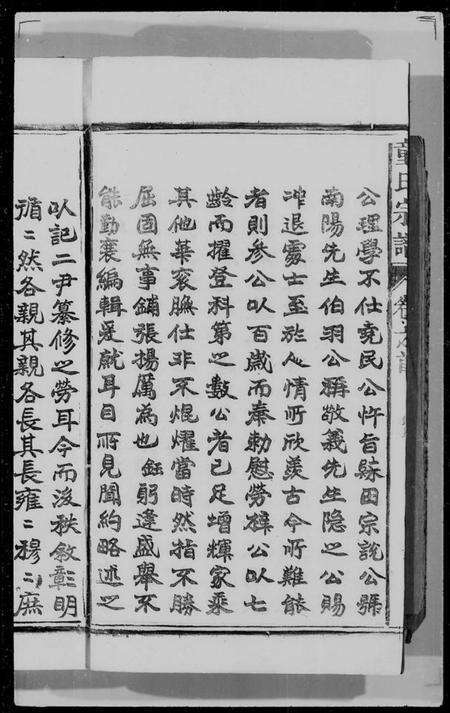 童氏宗譜
卷之首
公理學不仕堯民公忤旨歸田宗說公號
南陽先生伯羽公稱敬義先生隐之公賜
冲退處士至於人情所欣羨古今所難能
者則參公以百歲而奉勅慰勞樟公以七
齡而擢登科第之數公者已足增輝家乘
其他華衮膴仕非不焜燿當時然指不勝
屈固無事鋪張揚厲為也鈺躬逢盛舉不
能勤襄編輯爰就耳目所見聞約略述之
以記二尹纂修之勞耳今而後秩敘彰明
循二然各親其親各長其長雍二穆二庶